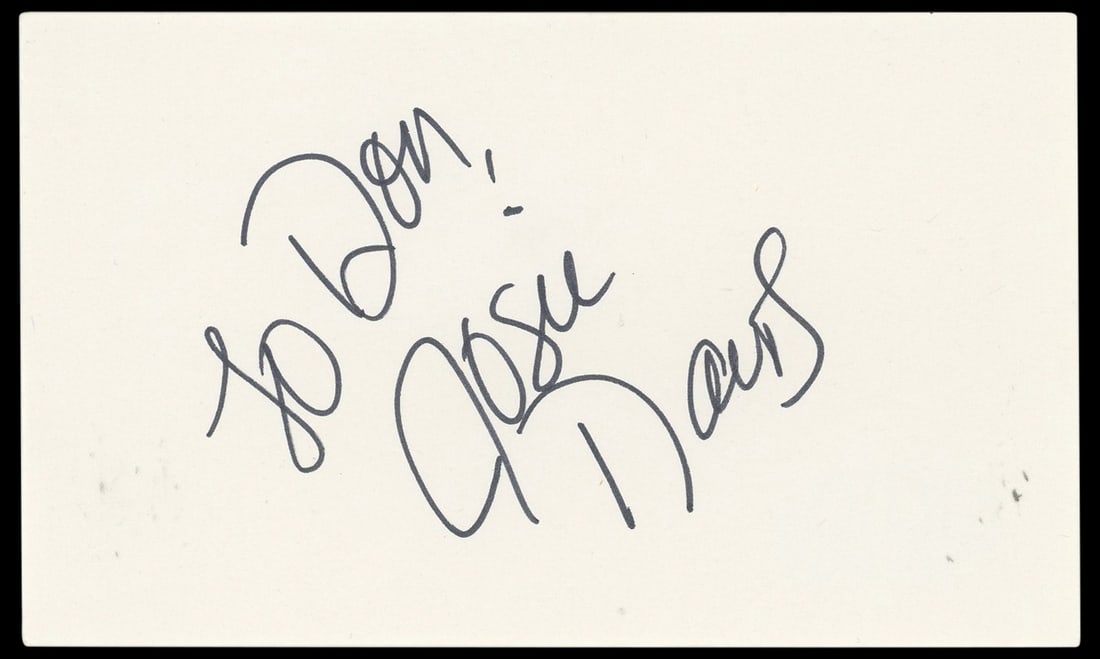 To Don!
Josie
Davis